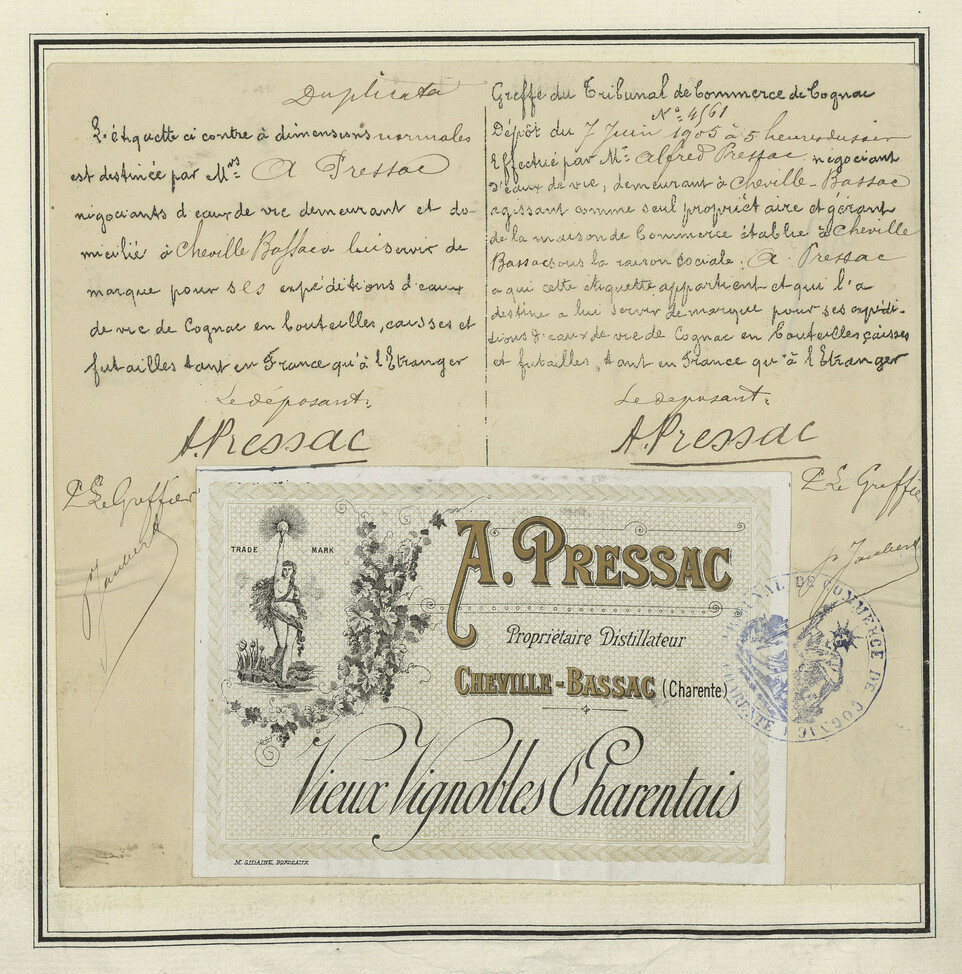 Duplicata
L'étiquette ci contre à dimensions normales
est destinée par Mrs A Pressac
négociants d'eaux de vie demeurant et do-
micilié à Cheville Bassac à lui servir de
marque pour ses expéditions d'eaux
de vie de Cognac en bouteilles, caisses et
futailles tant en France qu'à l'Etranger
Le déposant:
A. Pressac
Le Greffier
Greffe du Tribunal de Commerce de Cognac
No: 4561
Dépôt du 7 Juin 1905 à 5 heures du soir
Effectué par Mr: Alfred Pressac négociant
d'eaux de vie, demeurant à Cheville-Bassac
agissant comme seul propriétaire et gérant
de la maison de Commerce établie à Cheville
Bassac sous la raison sociale: A. Pressac
a qui cette étiquette appartient et qui l'a
destine a lui servir de marque pour ses expédi-
tions d'eaux de vie de Cognac en bouteilles caisses
et futailles, tant en France qu'à l'Etranger
Le deposant:
A. Pressac
Le Greffier
TRADE MARK
A. PRESSAC
Propriétaire Distillateur
CHEVILLE-BASSAC (Charente)
Vieux Vignobles Charentais
M. SIDAINE, BORDEAUX
TRIBUNAL DE COMMERCE DE COGNAC
CHARENTE